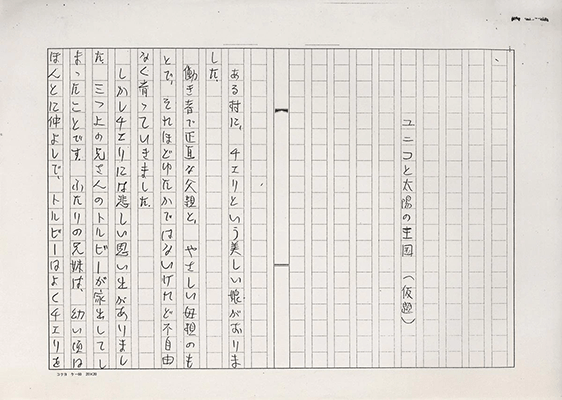 ユニコと太陽の王国 (仮題)
ある村に、チェリという美しい娘がありま
した。
働き者で正直な父親と、やさしい母親のも
とで、それほどゆたかではないけれど不自由
なく育っていきました。
しかしチェリには悲しい思い出がありまし
た。三つ上の兄さんのトルビーが家出してし
まったことです。ふたりの兄妹は、幼い頃は
ほんとに仲よしで、トルビーはよくチェリを
コクヨ ケー60 20×20